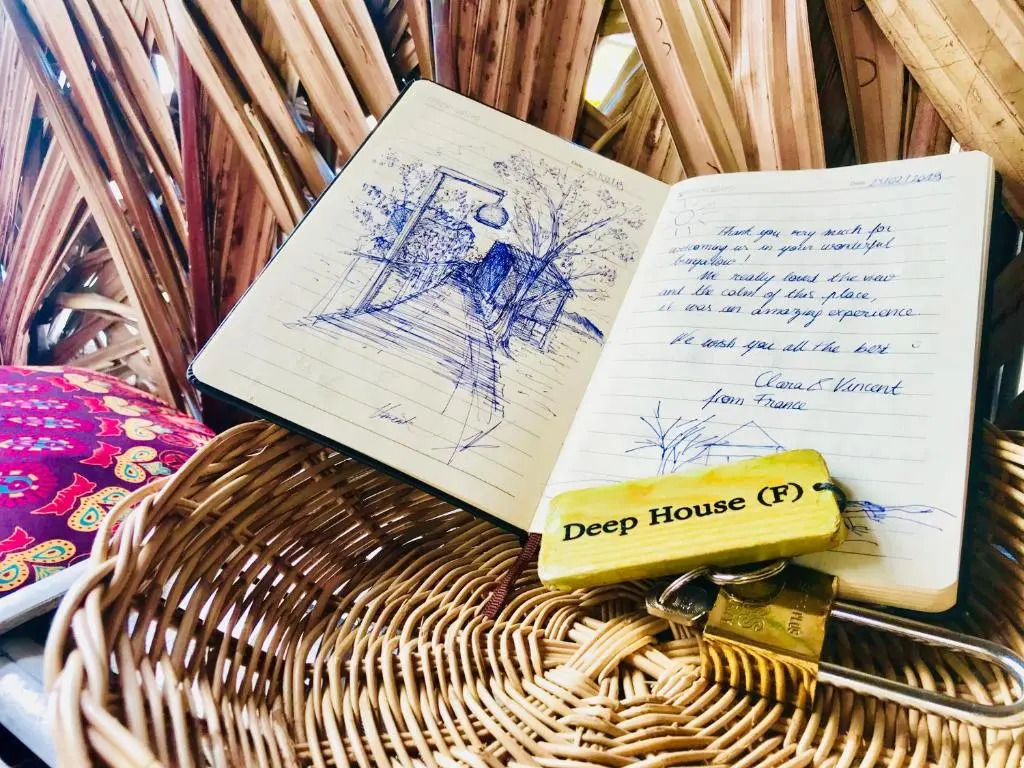 Date
Vincent
Date 23/02/2019
Thank you very much for
welcoming us in your wonderful
bungalow !
We really loved the view
and the calm of this place,
it was an amazing experience
We wish you all the best
Clara & Vincent
from France
Deep House (F)